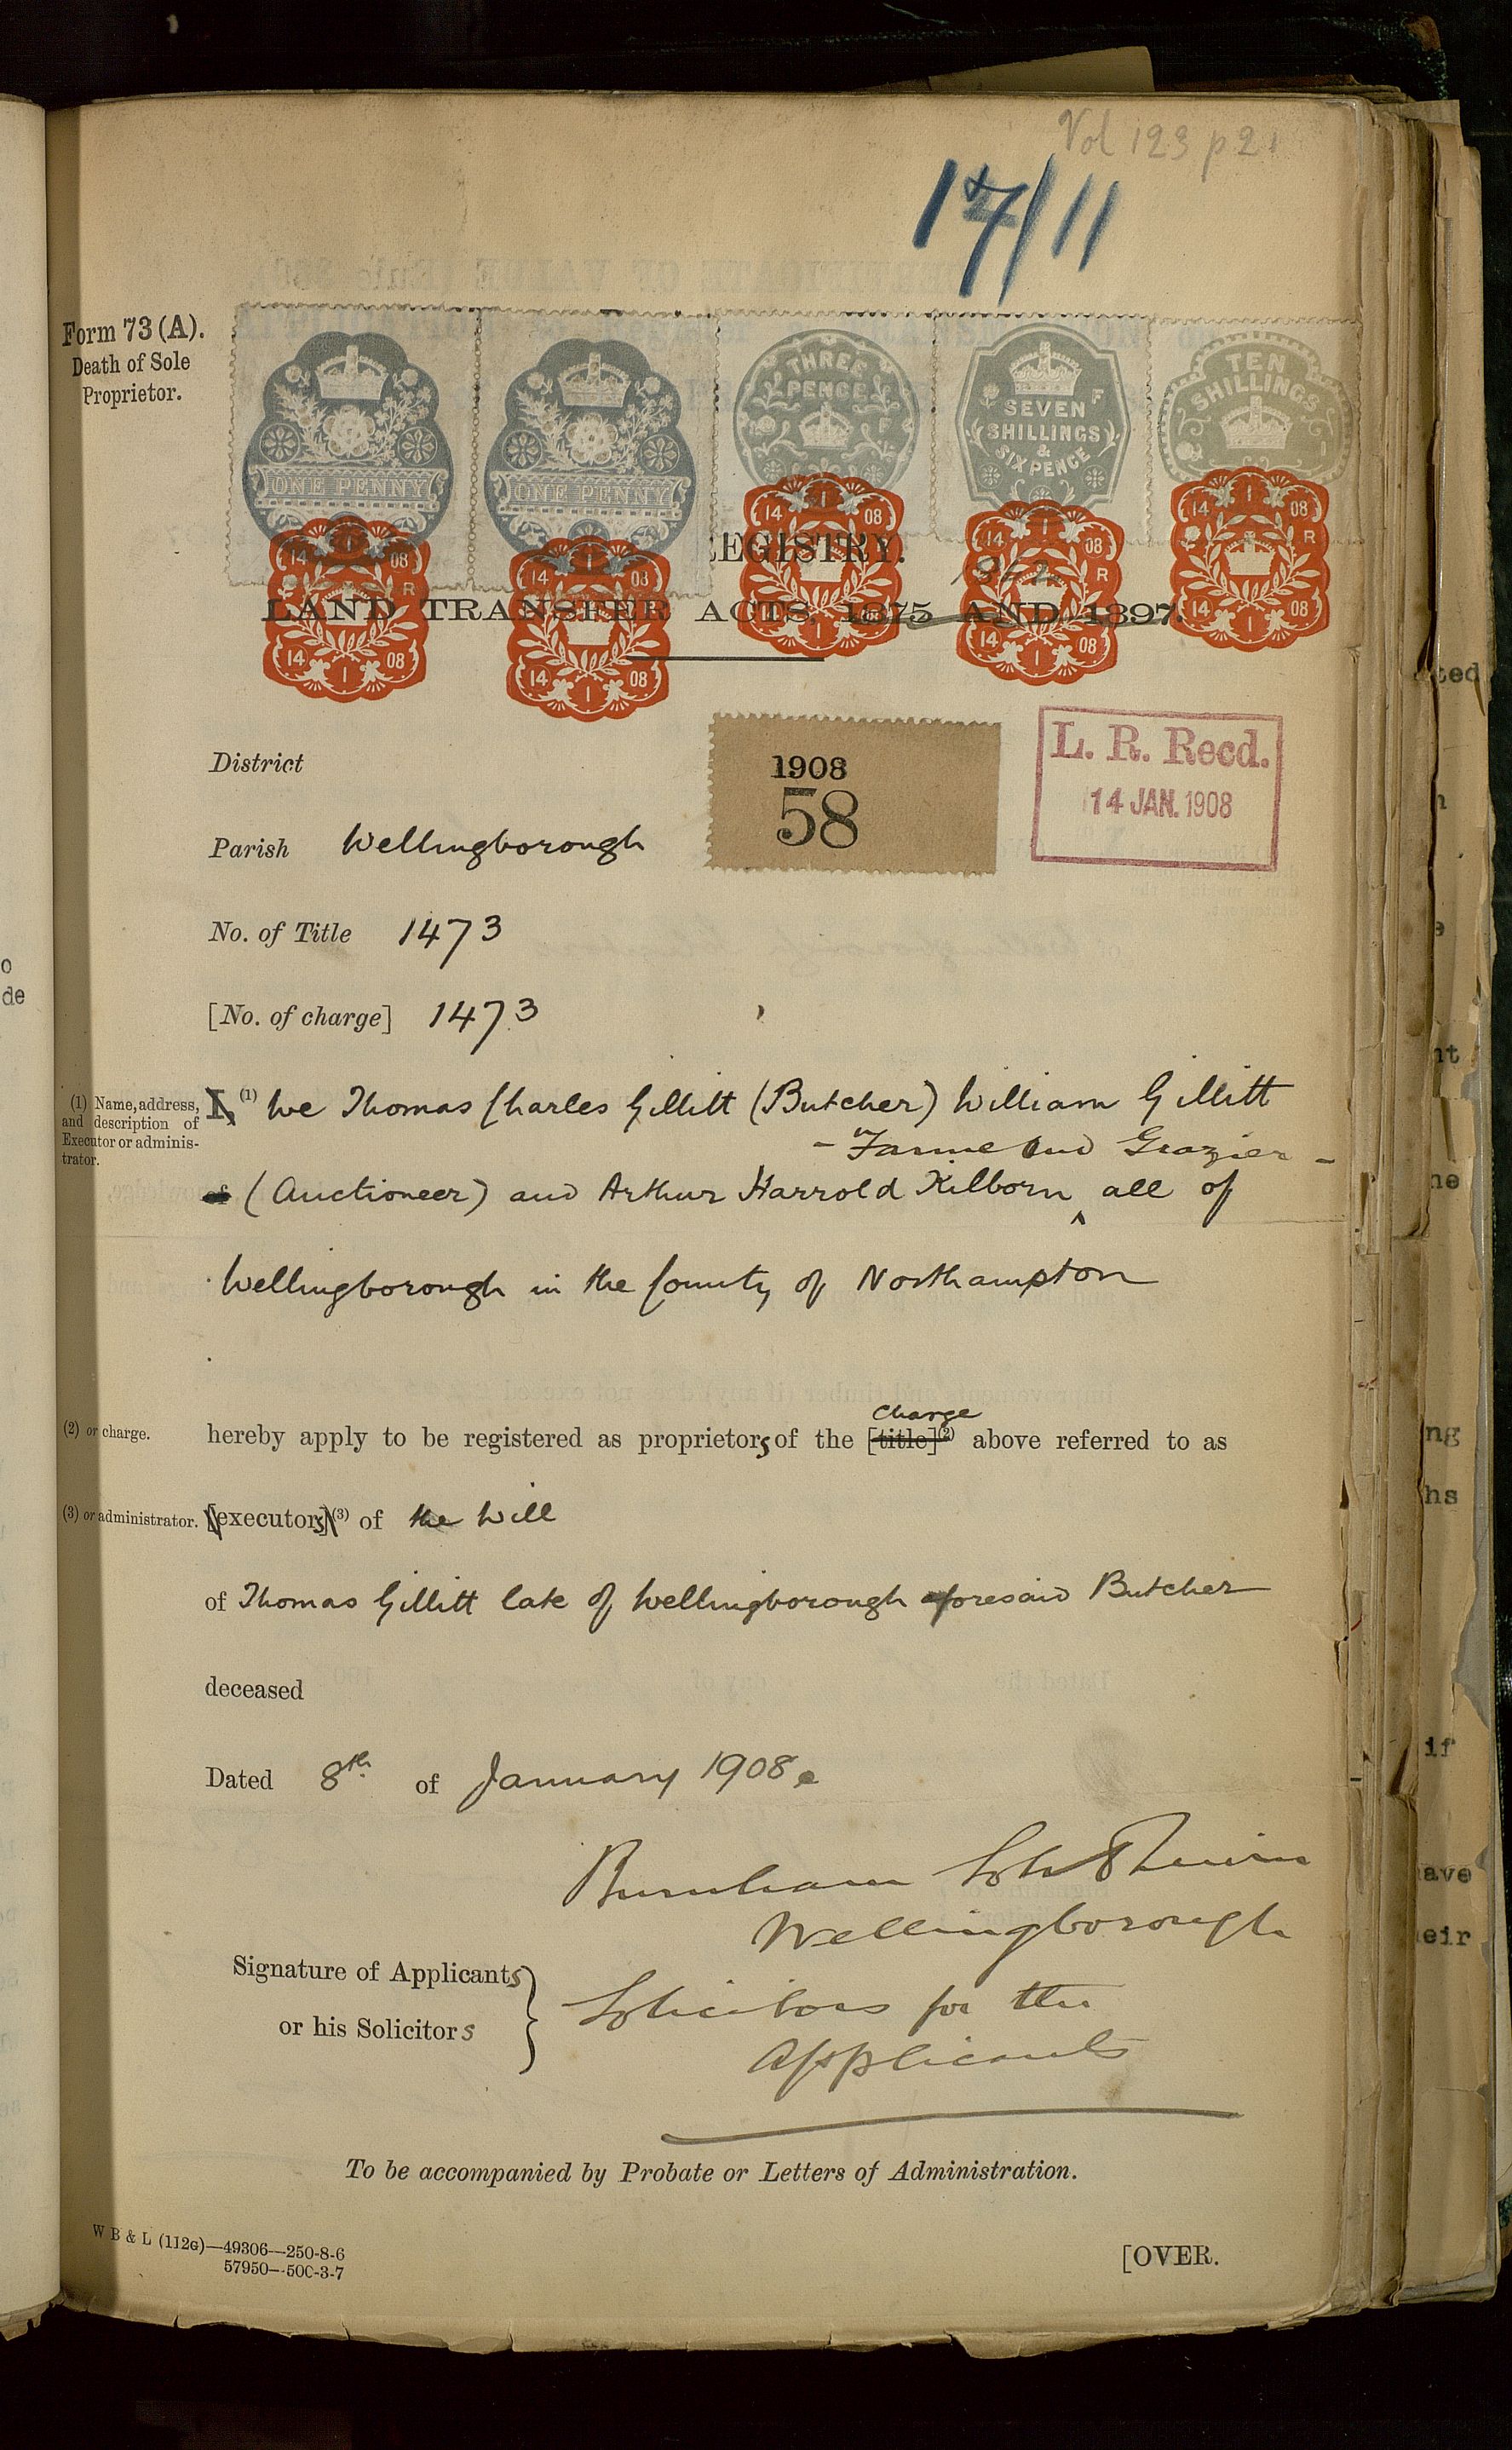 Vol 123 p 21
17/11
Form 73 (A).
Death of Sole
Proprietor.
ONE PENNY
ONE PENNY
THREE
PENCE
F
SEVEN
SHILLINGS
&
SIXPENCE
F
TEN
SHILLINGS
14 1 08
R
14 1 08
14 1 08
14 1 08
14 1 08
14 1 08
14 1 08
R
14 1 08
14 1 08
R
14 1 08
EGISTRY.
LAND TRANSFER ACTS, 1875 AND 1897.
District
1908
58
L. R. Recd.
14 JAN. 1908
Parish Wellingborough
No. of Title 1473
[No. of charge] 1473
(1) Name, address,
and description of
Executor or adminis-
trator.
I, (1) We Thomas Charles Gillitt (Butcher) William Gillitt
- Farmer and Grazier -
of (Auctioneer) and Arthur Harrold Kilborn ^ all of
Wellingborough in the County of Northampton
(2) or charge.
Charge
hereby apply to be registered as proprietors of the [title](2) above referred to as
(3) or administrator.
[executors](3) of the Will
of Thomas Gillitt late of Wellingborough aforesaid Butcher
deceased
Dated 8th of January 1908.
Burnham Son & Lewin
Wellingborough
Signature of Applicants
or his Solicitors
Solicitors for the
Applicants
To be accompanied by Probate or Letters of Administration.
W B & L (112G)—49306—250-8-6
57950—50C-3-7
[OVER.